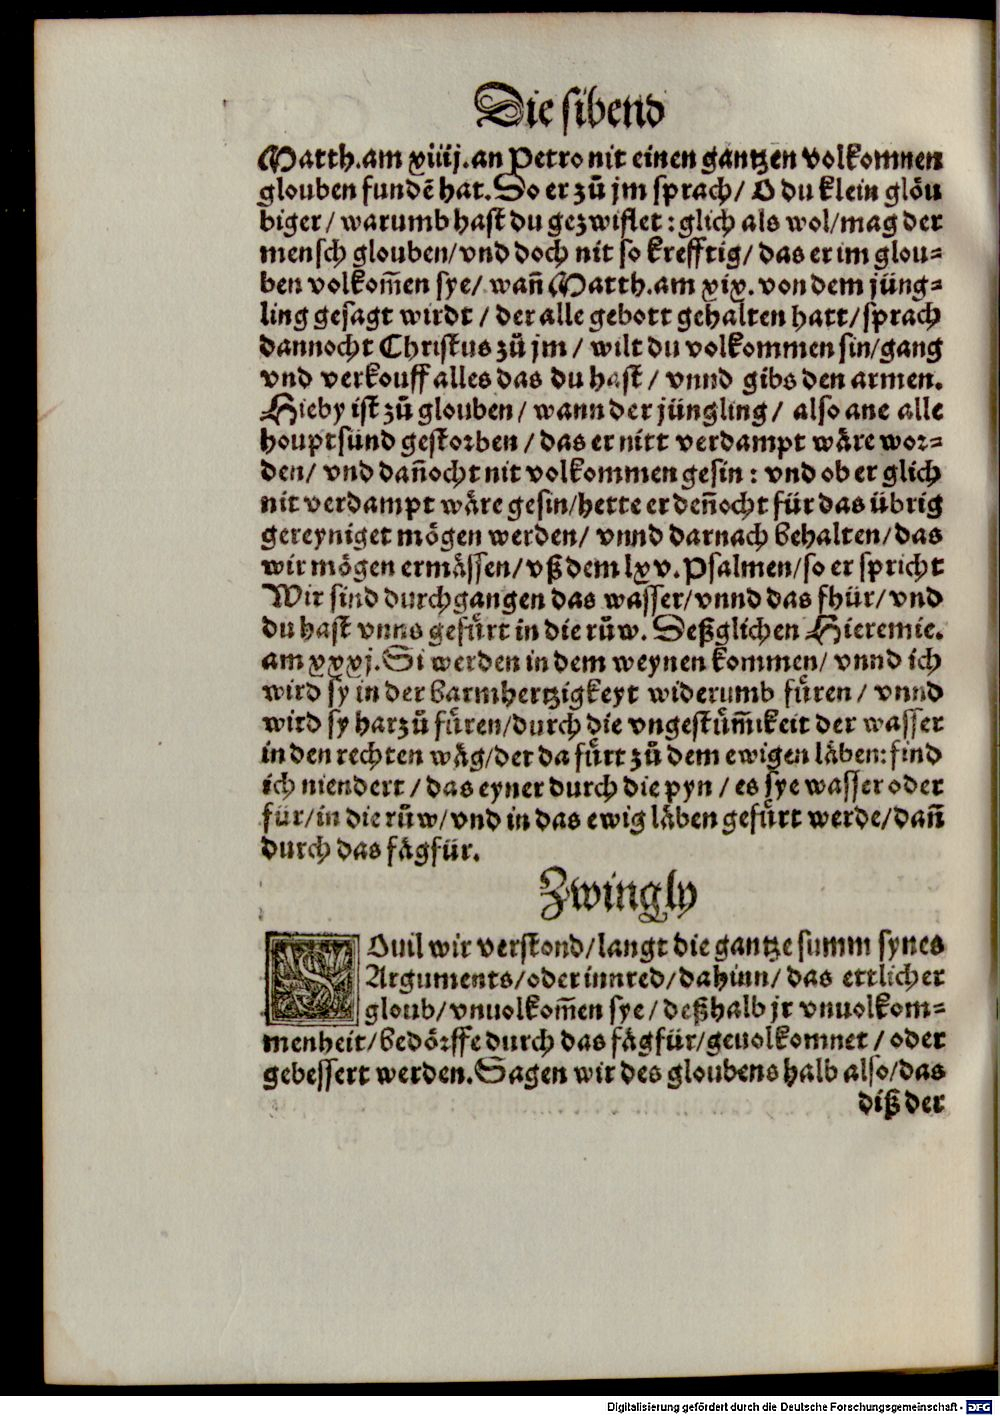 Die sibend
Matth. am xiiij. an Petro nit einen gantzen volkomnen
glouben fundẽ hat. So er zů jm sprach / O du klein glöu
biger / warumb hast du gezwiflet : glich als wol / mag der
mensch glouben / vnd doch nit so krefftig / das er im glou-
ben volkom̃en sye / wañ Matth. am xix. von dem jüng-
ling gesagt wirdt / der alle gebott gehalten hatt / sprach
dannocht Christus zů jm / wilt du volkommen sin / gang
vnd verkouff alles das du hast / vnnd gibs den armen.
Hieby ist zů glouben / wann der jüngling / also ane alle
houptsünd gestorben / das er nitt verdampt wäre wor-
den / vnd dañocht nit volkommen gesin : vnd ob er glich
nit verdampt wäre gesin / hette er deñocht für das übrig
gereyniget mögen werden / vnnd darnach behalten / das
wir mögen ermässen / vß dem lxv. Psalmen / so er spricht
Wir sind durchgangen das wasser / vnnd das fhür / vnd
du hast vnns gefürt in die růw. Deßglichen Hieremie.
am xxxj. Si werden in dem weynen kommen / vnnd ich
wird sy in der barmhertzigkeyt widerumb füren / vnnd
wird sy harzů füren / durch die vngestüm̃ikeit der wasser
in den rechten wäg / der da fürt zů dem ewigen läben: find
ich niendert / das eyner durch die pyn / es sye wasser oder
für / in die růw / vnd in das ewig läben gefürt werde / dañ
durch das fägfür.
Zwingly
SOuil wir verstond / langt die gantze summ synes
Arguments / oder innred / dahinn / das ettlicher
gloub / vnuolkom̃en sye / deßhalb jr vnuolkom-
menheit / bedörffe durch das fägfür / geuolkomnet / oder
gebessert werden. Sagen wir des gloubens halb also / das
diß der
Digitalisierung gefördert durch die Deutsche Forschungsgemeinschaft - DFG